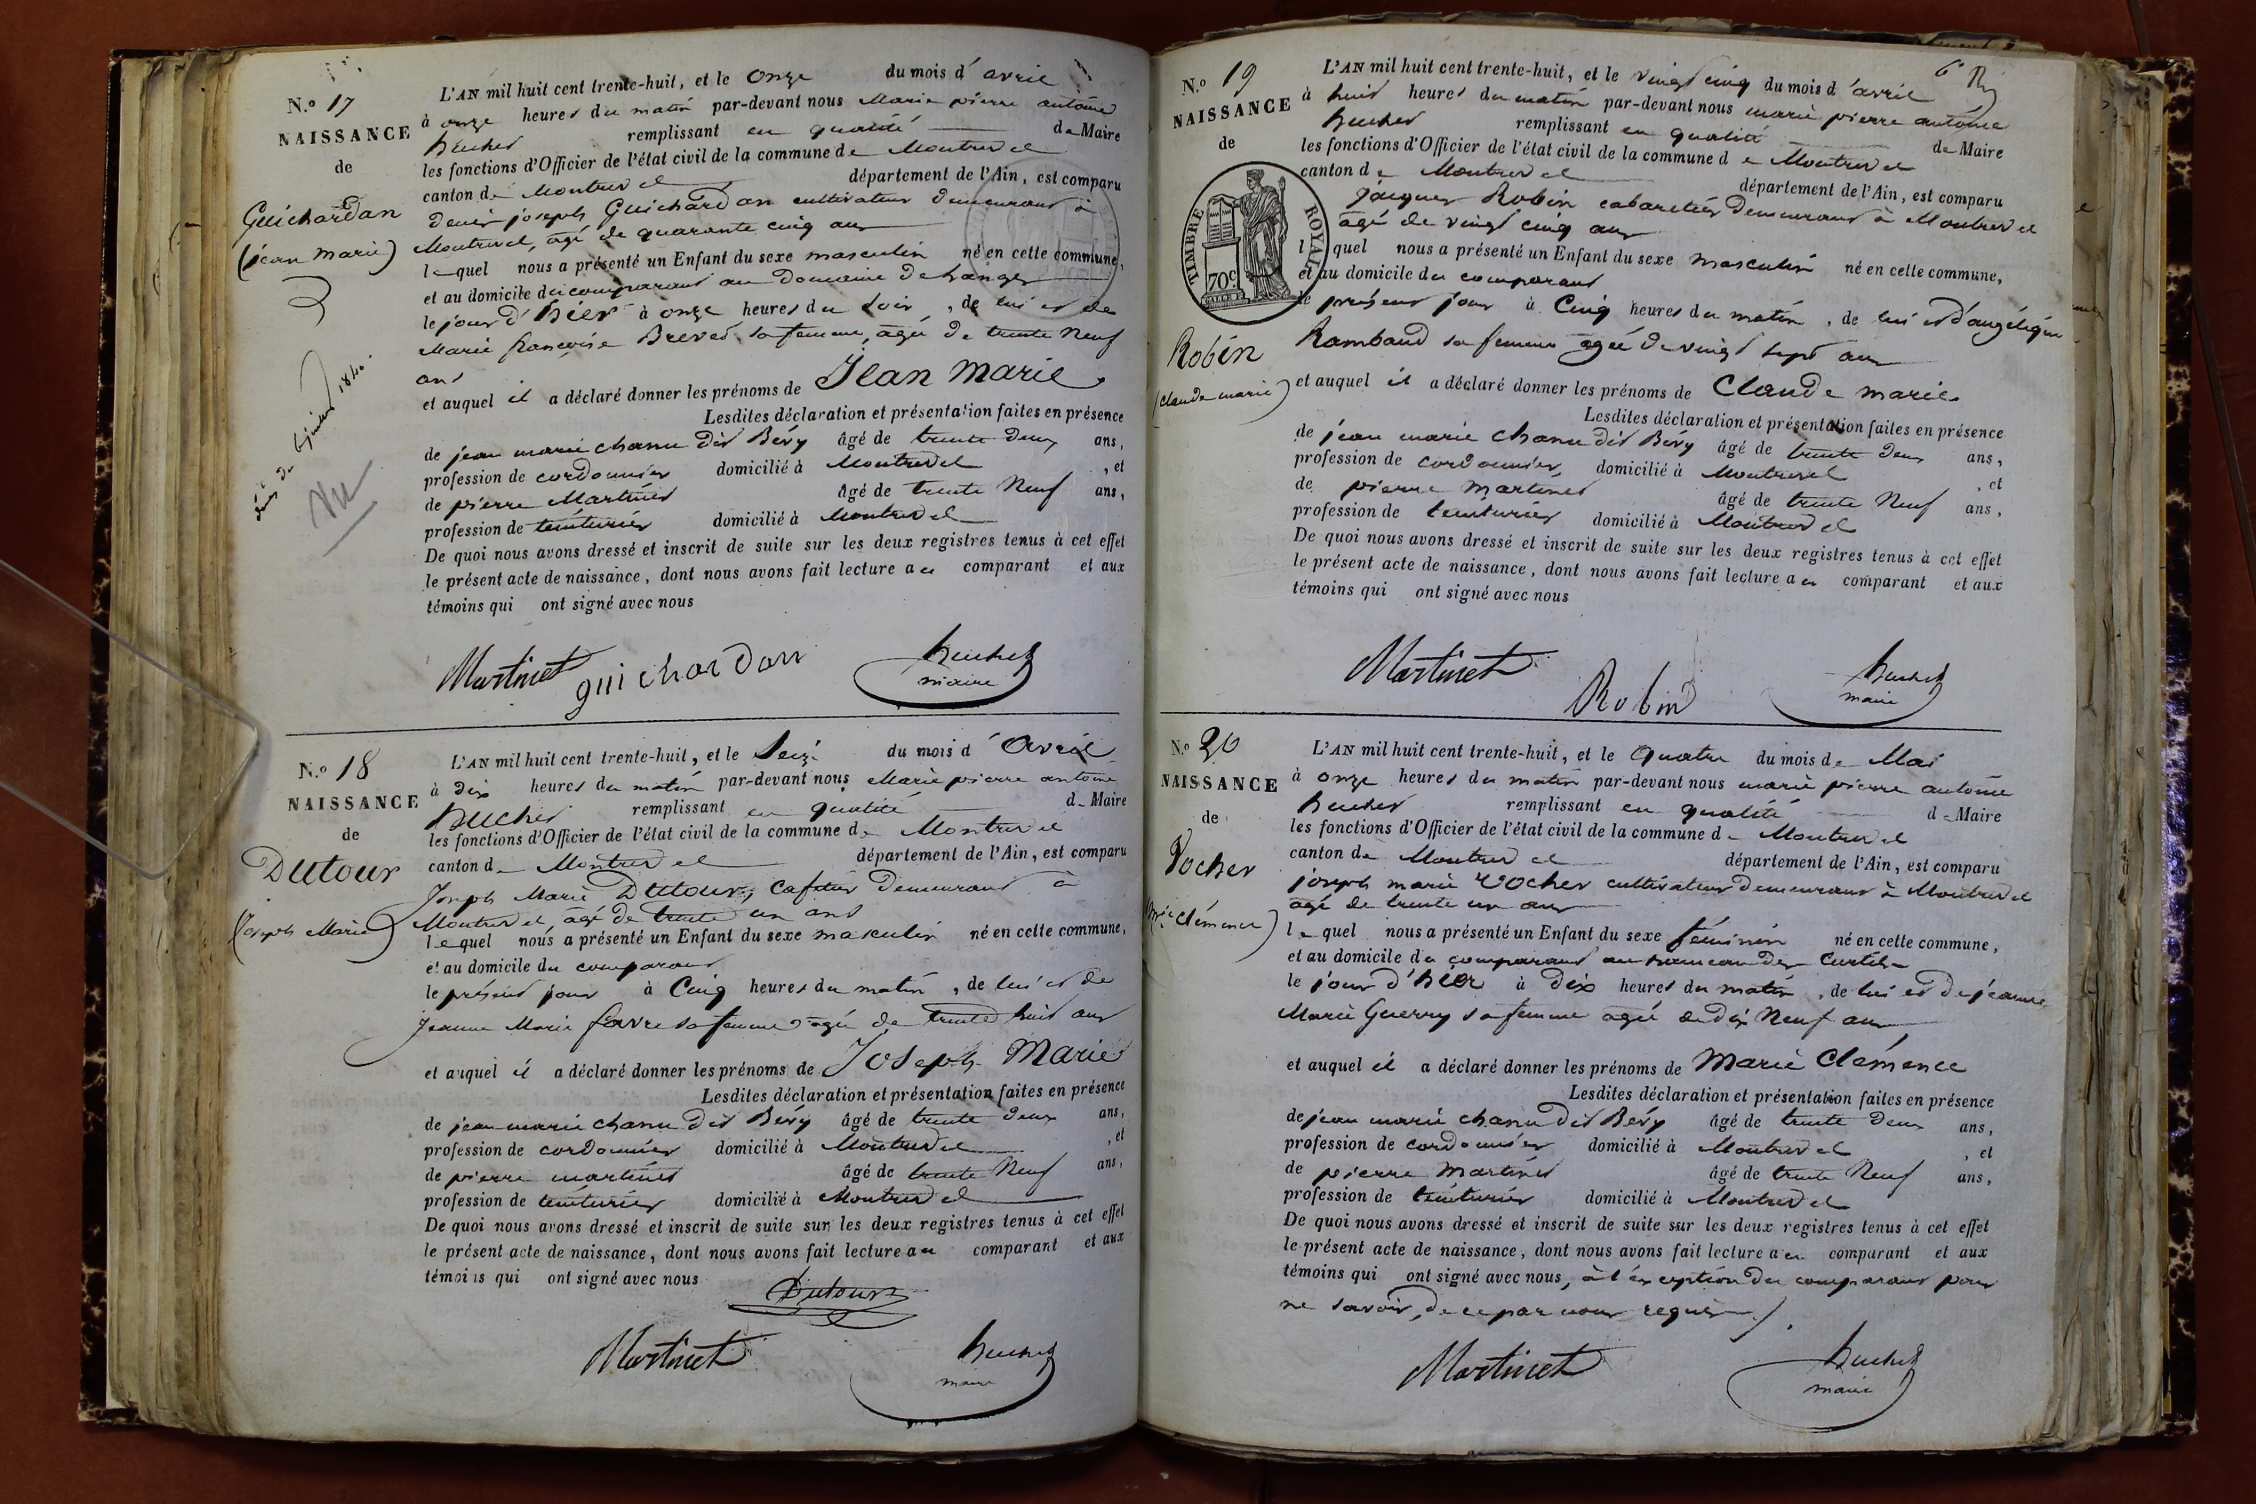 N.º 17
NAISSANCE
de
Guichardan
(jean marie)
L'AN mil huit cent trente-huit, et le onze du mois d'avril
à onze heures du matin par-devant nous Marie pierre antoine
huchet remplissant en qualité de Maire
les fonctions d'Officier de l'état civil de la commune de Montrevel
canton de Montrevel département de l'Ain, est comparu
denis joseph Guichardan cultivateur demeurant à
Montrevel, agé de quarante cinq ans
lequel nous a présenté un Enfant du sexe masculin né en cette commune,
et au domicile du comparant au Domaine
le jour d'hier à onze heures du soir, de lui et de
Marie françoise Brevet sa femme, agée de trente neuf
ans
et auquel il a déclaré donner les prénoms de Jean Marie
Lesdites déclaration et présentation faites en présence
de jean marie chanu dit Béry âgé de trente deux ans,
profession de cordonnier domicilié à Montrevel, et
de pierre Martinet âgé de trente Neuf ans,
profession de teinturier domicilié à Montrevel
De quoi nous avons dressé et inscrit de suite sur les deux registres tenus à cet effet
le présent acte de naissance, dont nous avons fait lecture au comparant et aux
témoins qui ont signé avec nous
Martinet guichardan huchet
maire
Vu
N.º 18
NAISSANCE
de
Dutour
(Joseph Marie)
L'AN mil huit cent trente-huit, et le Seize du mois d'Avril
à dix heures du matin par-devant nous Marie pierre antoine
huchet remplissant en qualité de Maire
les fonctions d'Officier de l'état civil de la commune de Montrevel
canton de Montrevel département de l'Ain, est comparu
Joseph Marie Dutour, cafetier demeurant à
Montrevel, agé de trente un ans
lequel nous a présenté un Enfant du sexe masculin né en cette commune,
et au domicile du comparant
le présent jour à Cinq heures du matin, de lui et de
Jeanne Marie favre sa femme agée de trente huit ans
et auquel il a déclaré donner les prénoms de Joseph Marie
Lesdites déclaration et présentation faites en présence
de jean marie chanu dit Béry âgé de trente deux ans,
profession de cordonnier domicilié à Montrevel, et
de pierre martinet âgé de trente Neuf ans,
profession de teinturier domicilié à Montrevel
De quoi nous avons dressé et inscrit de suite sur les deux registres tenus à cet effet
le présent acte de naissance, dont nous avons fait lecture au comparant et aux
témoins qui ont signé avec nous
Dutour
Martinet huchet
maire
6e
N.º 19
NAISSANCE
de
TIMBRE ROYAL
70c
Robin
(claude marie)
L'AN mil huit cent trente-huit, et le vingt cinq du mois d'avril
à huit heures du matin par-devant nous marie pierre antoine
huchet remplissant en qualité de Maire
les fonctions d'Officier de l'état civil de la commune de Montrevel
canton de Montrevel département de l'Ain, est comparu
jacques Robin cabaretier demeurant à Montrevel
agé de vingt cinq ans
lequel nous a présenté un Enfant du sexe masculin né en cette commune,
et au domicile du comparant
le présent jour à Cinq heures du matin, de lui et d'angélique
Rambaud sa femme agée de vingt sept ans
et auquel il a déclaré donner les prénoms de Claude marie
Lesdites déclaration et présentation faites en présence
de jean marie chanu dit Béry âgé de trente deux ans,
profession de cordonnier domicilié à Montrevel, et
de pierre martinet âgé de trente Neuf ans,
profession de teinturier domicilié à Montrevel
De quoi nous avons dressé et inscrit de suite sur les deux registres tenus à cet effet
le présent acte de naissance, dont nous avons fait lecture au comparant et aux
témoins qui ont signé avec nous
Martinet Robin huchet
maire
N.º 20
NAISSANCE
de
Vocher
(Mie Clémence)
L'AN mil huit cent trente-huit, et le quatre du mois de Mai
à onze heures du matin par-devant nous marie pierre antoine
huchet remplissant en qualité de Maire
les fonctions d'Officier de l'état civil de la commune de Montrevel
canton de Montrevel département de l'Ain, est comparu
joseph marie Vocher cultivateur demeurant à Montrevel
agé de trente un ans
lequel nous a présenté un Enfant du sexe féminin né en cette commune,
et au domicile du comparant au hameau des Curtils
le jour d'hier à dix heures du matin, de lui et de jeanne
Marie Guerry sa femme agée de dix Neuf ans
et auquel il a déclaré donner les prénoms de Marie Clémence
Lesdites déclaration et présentation faites en présence
de jean marie chanu dit Béry âgé de trente deux ans,
profession de cordonnier domicilié à Montrevel, et
de pierre Martinet âgé de trente Neuf ans,
profession de teinturier domicilié à Montrevel
De quoi nous avons dressé et inscrit de suite sur les deux registres tenus à cet effet
le présent acte de naissance, dont nous avons fait lecture au comparant et aux
témoins qui ont signé avec nous, à l'exception du comparant pour
ne savoir, de ce par nous requis
Martinet huchet
maire